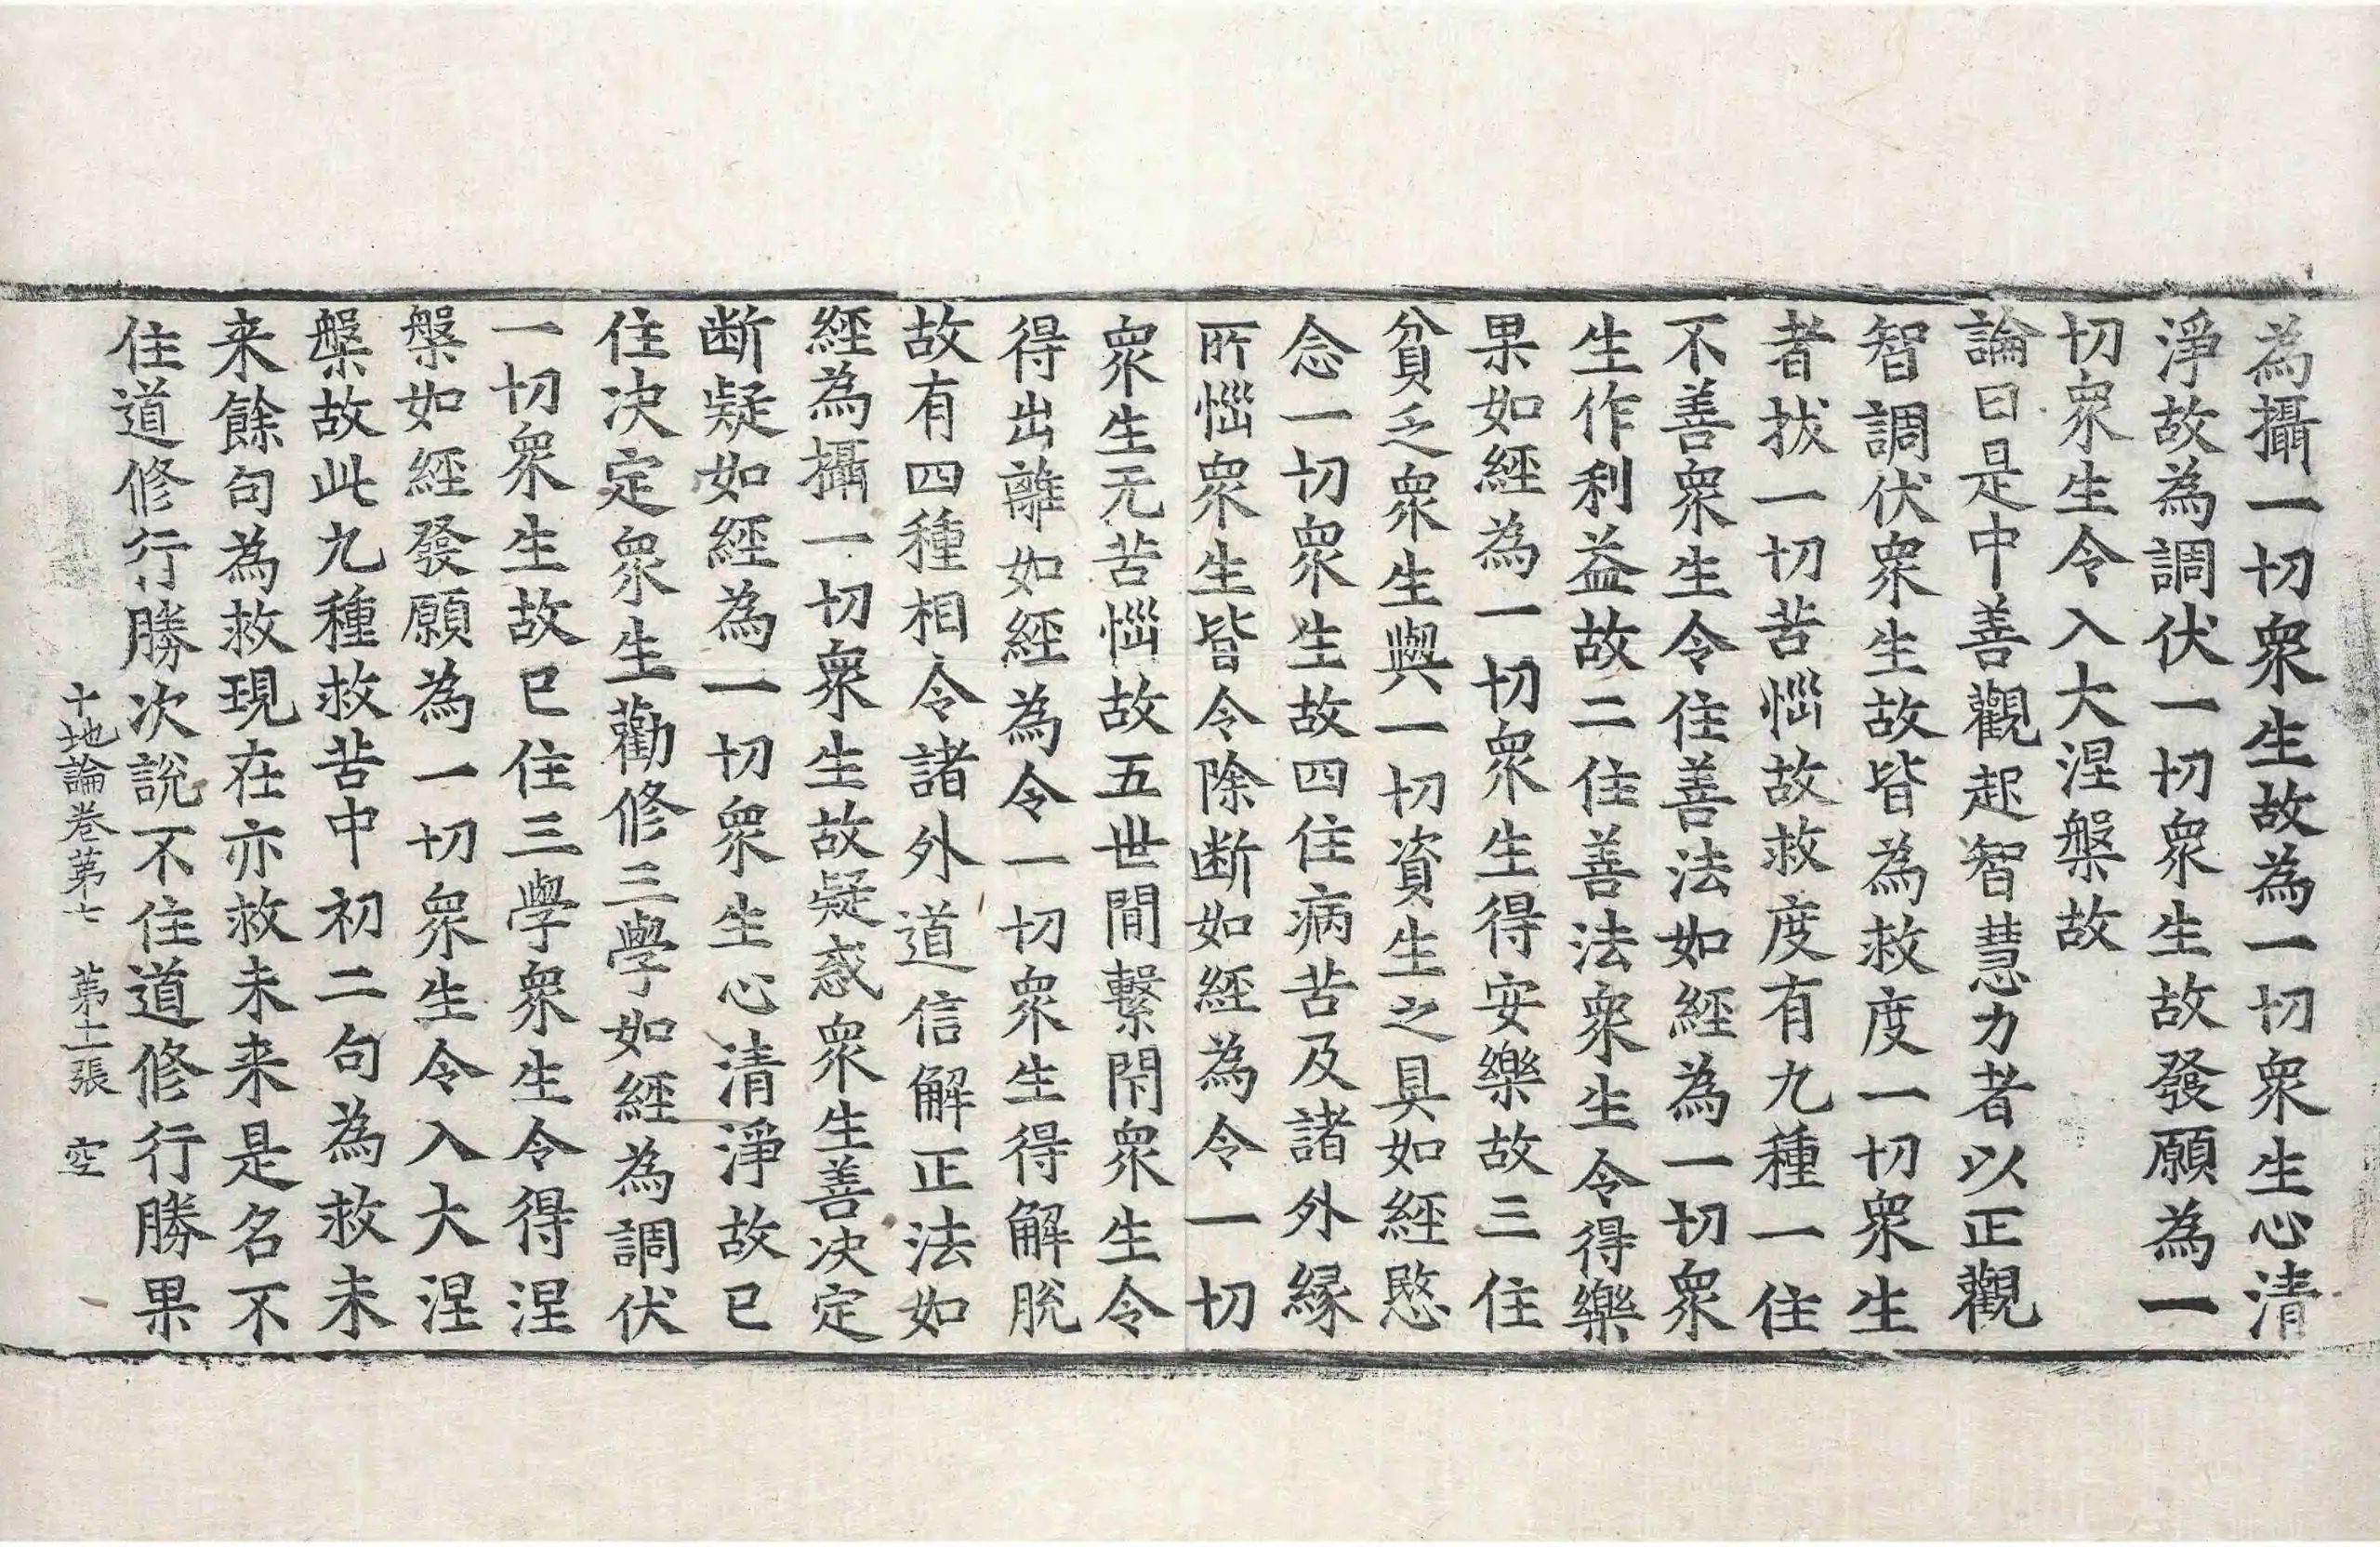 為攝一切衆生故為一切衆生心清
淨故為調伏一切衆生故發願為一
切衆生令入大涅槃故
論曰是中善觀起智慧力者以正觀
智調伏衆生故皆為救度一切衆生
者拔一切苦惱故救度有九種一住
不善衆生令住善法如經為一切衆
生作利益故二住善法衆生令得樂
果如經為一切衆生得安樂故三住
貧乏衆生與一切資生之具如經愍
念一切衆生故四住病苦及諸外緣
所惱衆生皆令除断如經為令一切
衆生无苦惱故五世間繫閇衆生令
得出離如經為令一切衆生得解脫
故有四種相令諸外道信解正法如
經為攝一切衆生故疑惑衆生善决定
断疑如經為一切衆生心清淨故已
住决定衆生勸修三學如經為調伏
一切衆生故已住三學衆生令得涅
槃如經發願為一切衆生令入大涅
槃故此九種救苦中初二句為救未
来餘句為救現在亦救未来是名不
住道修行勝次說不住道修行勝果
十地論卷苐七 苐十二張 空